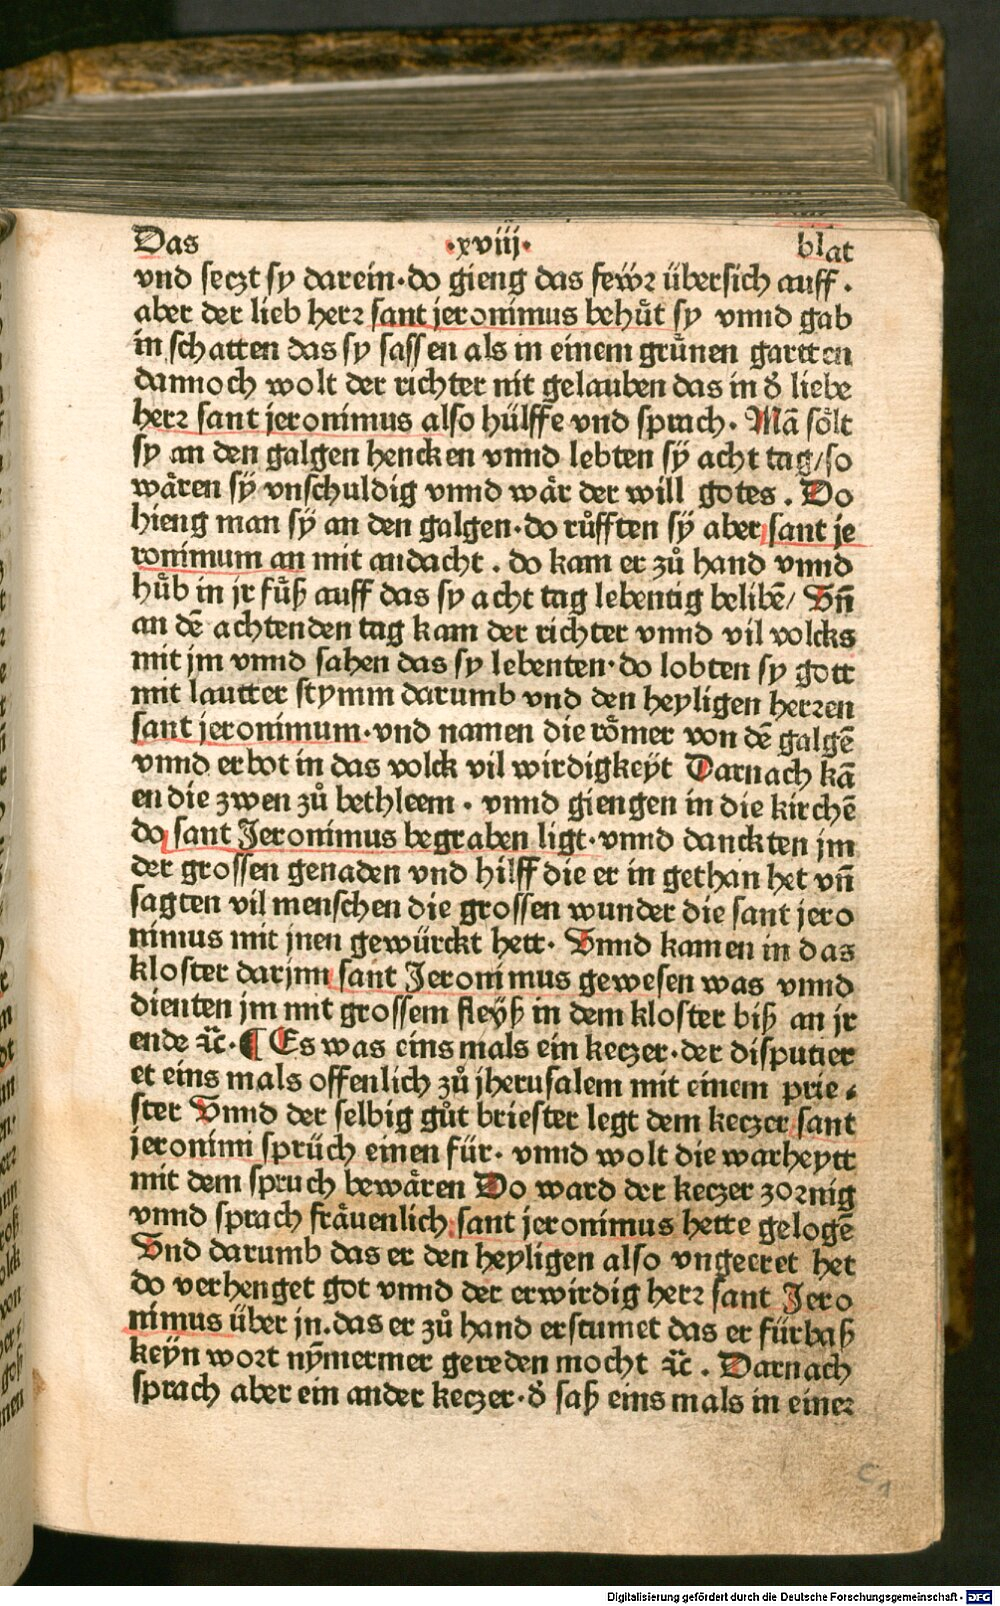 Das ·xviij· blat
vnd seczt sy darein·do gieng das feẅr übersich auff.
aber der lieb herr sant jeronimus behuͤt sy vnnd gab
in schatten das sy sassen als in einem gruͤnen gartten
dannoch wolt der richter nit gelauben das in d̕ liebe
herr sant jeronimus also hülffe vnd sprach. Mā soͤlt
sy an den galgen hencken vnnd lebten sÿ acht tag/so
waͤren sÿ vnschuldig vnnd waͤr der will gotes. Do
hieng man sÿ an den galgen·do ruͦfften sÿ aber sant je
ronimum an mit andacht. do kam er zuͦ hand vnnd
huͦb in jr fuͤß auff das sy acht tag lebentig belibē/ Vn̄
an dē achtenden tag kam der richter vnnd vil volcks
mit jm vnnd sahen das sy lebenten·do lobten sy gott
mit lautter stymm darumb vnd den heyligen herren
sant jeronimum·vnd namen die roͤmer von dē galgē
vnnd erbot in das volck vil wirdigkeÿt Darnach kā
en die zwen zuͦ bethleem. vnnd giengen in die kirchē
do sant Jeronimus begraben ligt·vnnd danckten jm
der grossen genaden vnd hilff die er in gethan het vn̄
sagten vil menschen die grossen wunder die sant jero
nimus mit jnen gewürckt hett. Vnnd kamen in das
kloster darjnn sant Jeronimus gewesen was vnnd
dienten jm mit grossem fleÿß in dem kloster biß an jr
ende ꝛc̄·¶ Es was eins mals ein keczer·der disputier
et eins mals offenlich zuͦ jherusalem mit einem prie⸗
ster Vnnd der selbig guͦt briester legt dem keczer sant
jeronimi sprüch einen für. vnnd wolt die warheytt
mit dem spruch bewaͤren Do ward der keczer zornig
vnnd sprach fraͤuenlich sant jeronimus hette gelogē
Vnd darumb das er den heyligen also vngeeret het
do verhenget got vnnd der erwirdig herr sant Jero
nimus über jn.das er zuͦ hand erstumet das er fürbaß
keÿn wort nÿmermer gereden mocht ꝛc̄. Darnach
sprach aber ein ander keczer·d̕ saß eins mals in einer
c 1
Digitalisierung gefördert durch die Deutsche Forschungsgemeinschaft - DFG